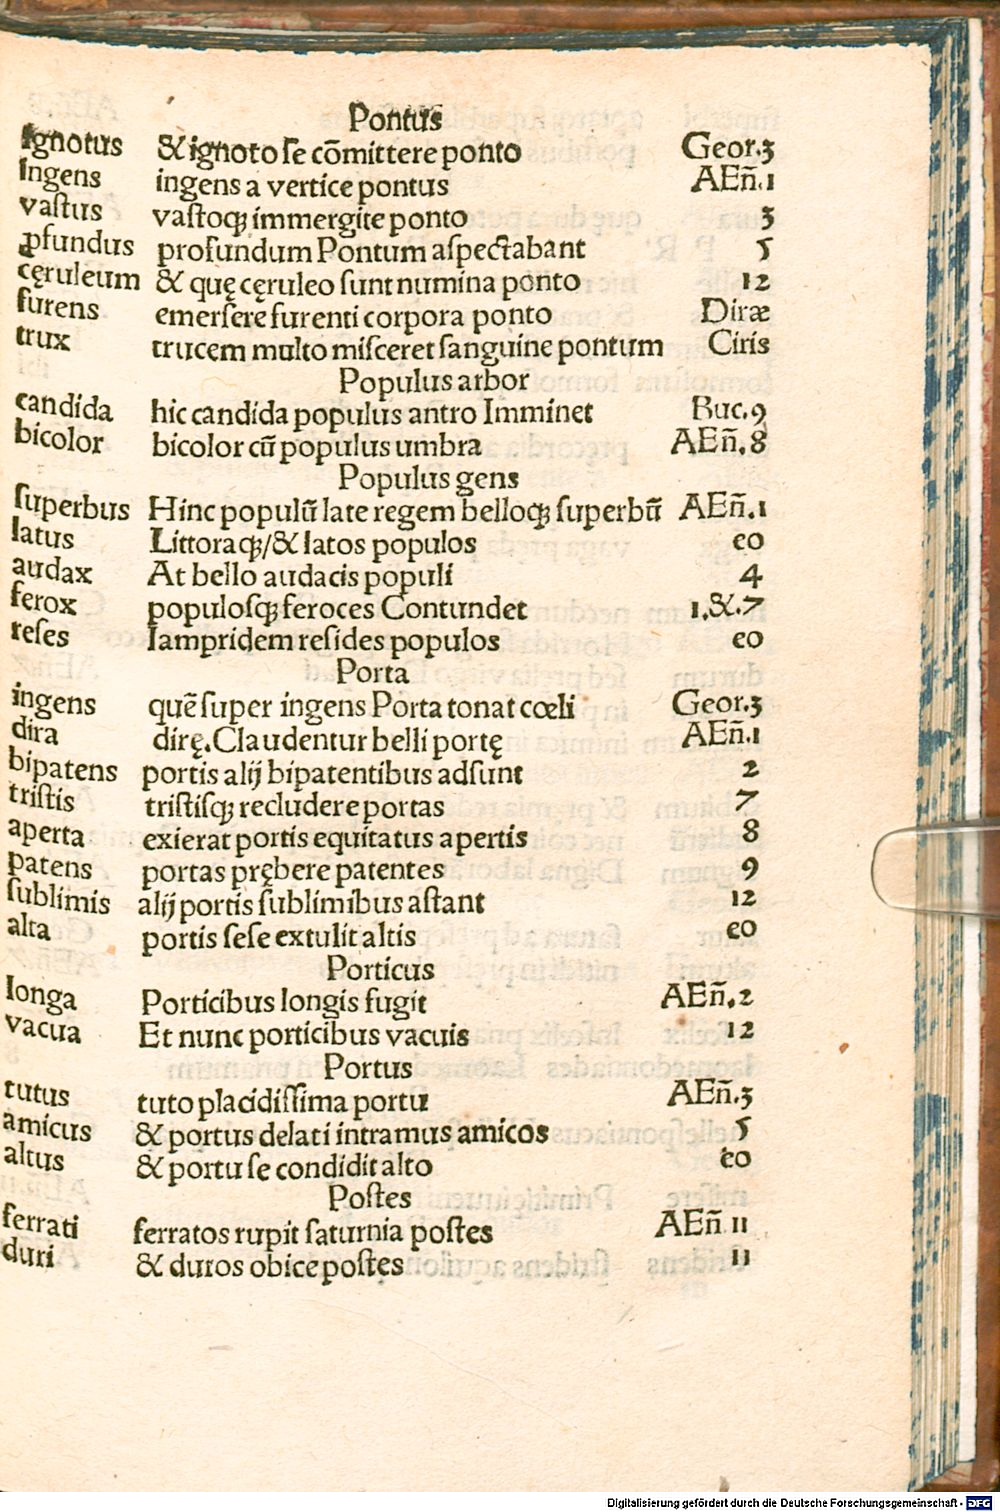 Pontus
Ignotus & ignoto ſe cōmittere ponto Geor.3
Ingens ingens a vertice pontus AEn̄.1
vaſtus vaſtoqꝫ immergite ponto 3
ꝓfundus profundum Pontum aſpectabant 5
cęruleum & quę cęruleo ſunt numina ponto 12
furens emerſere furenti corpora ponto Diræ
trux trucem multo miſceret ſanguine pontum Ciris
Populus arbor
candida hic candida populus antro Imminet Buc.9
bicolor bicolor cū populus umbra AEn̄.8
Populus gens
ſuperbus Hinc populū late regem belloqꝫ ſuperbū AEn̄.1
latus Littoraqꝫ/& latos populos eo
audax At bello audacis populi 4
ferox populoſqꝫ feroces Contundet 1.&.7
reſes Iampridem reſides populos eo
Porta
ingens quē ſuper ingens Porta tonat cœli Geor.3
dira dirę.Claudentur belli portę AEn̄.1
bipatens portis alij bipatentibus adſunt 2
triſtis triſtiſqꝫ recludere portas 7
aperta exierat portis equitatus apertis 8
patens portas prębere patentes 9
ſublimis alij portis ſublimibus aſtant 12
alta portis ſeſe extulit altis eo
Porticus
longa Porticibus longis fugit AEn̄.2
vacua Et nunc porticibus vacuis 12
Portus
tutus tuto placidiſſima portu AEn̄.3
amicus & portus delati intramus amicos 5
altus & portu ſe condidit alto eo
Poſtes
ferrati ferratos rupit ſaturnia poſtes AEn̄ 11
duri & duros obice poſtes 11
Digitalisierung gefördert durch die Deutsche Forschungsgemeinschaft - DFG